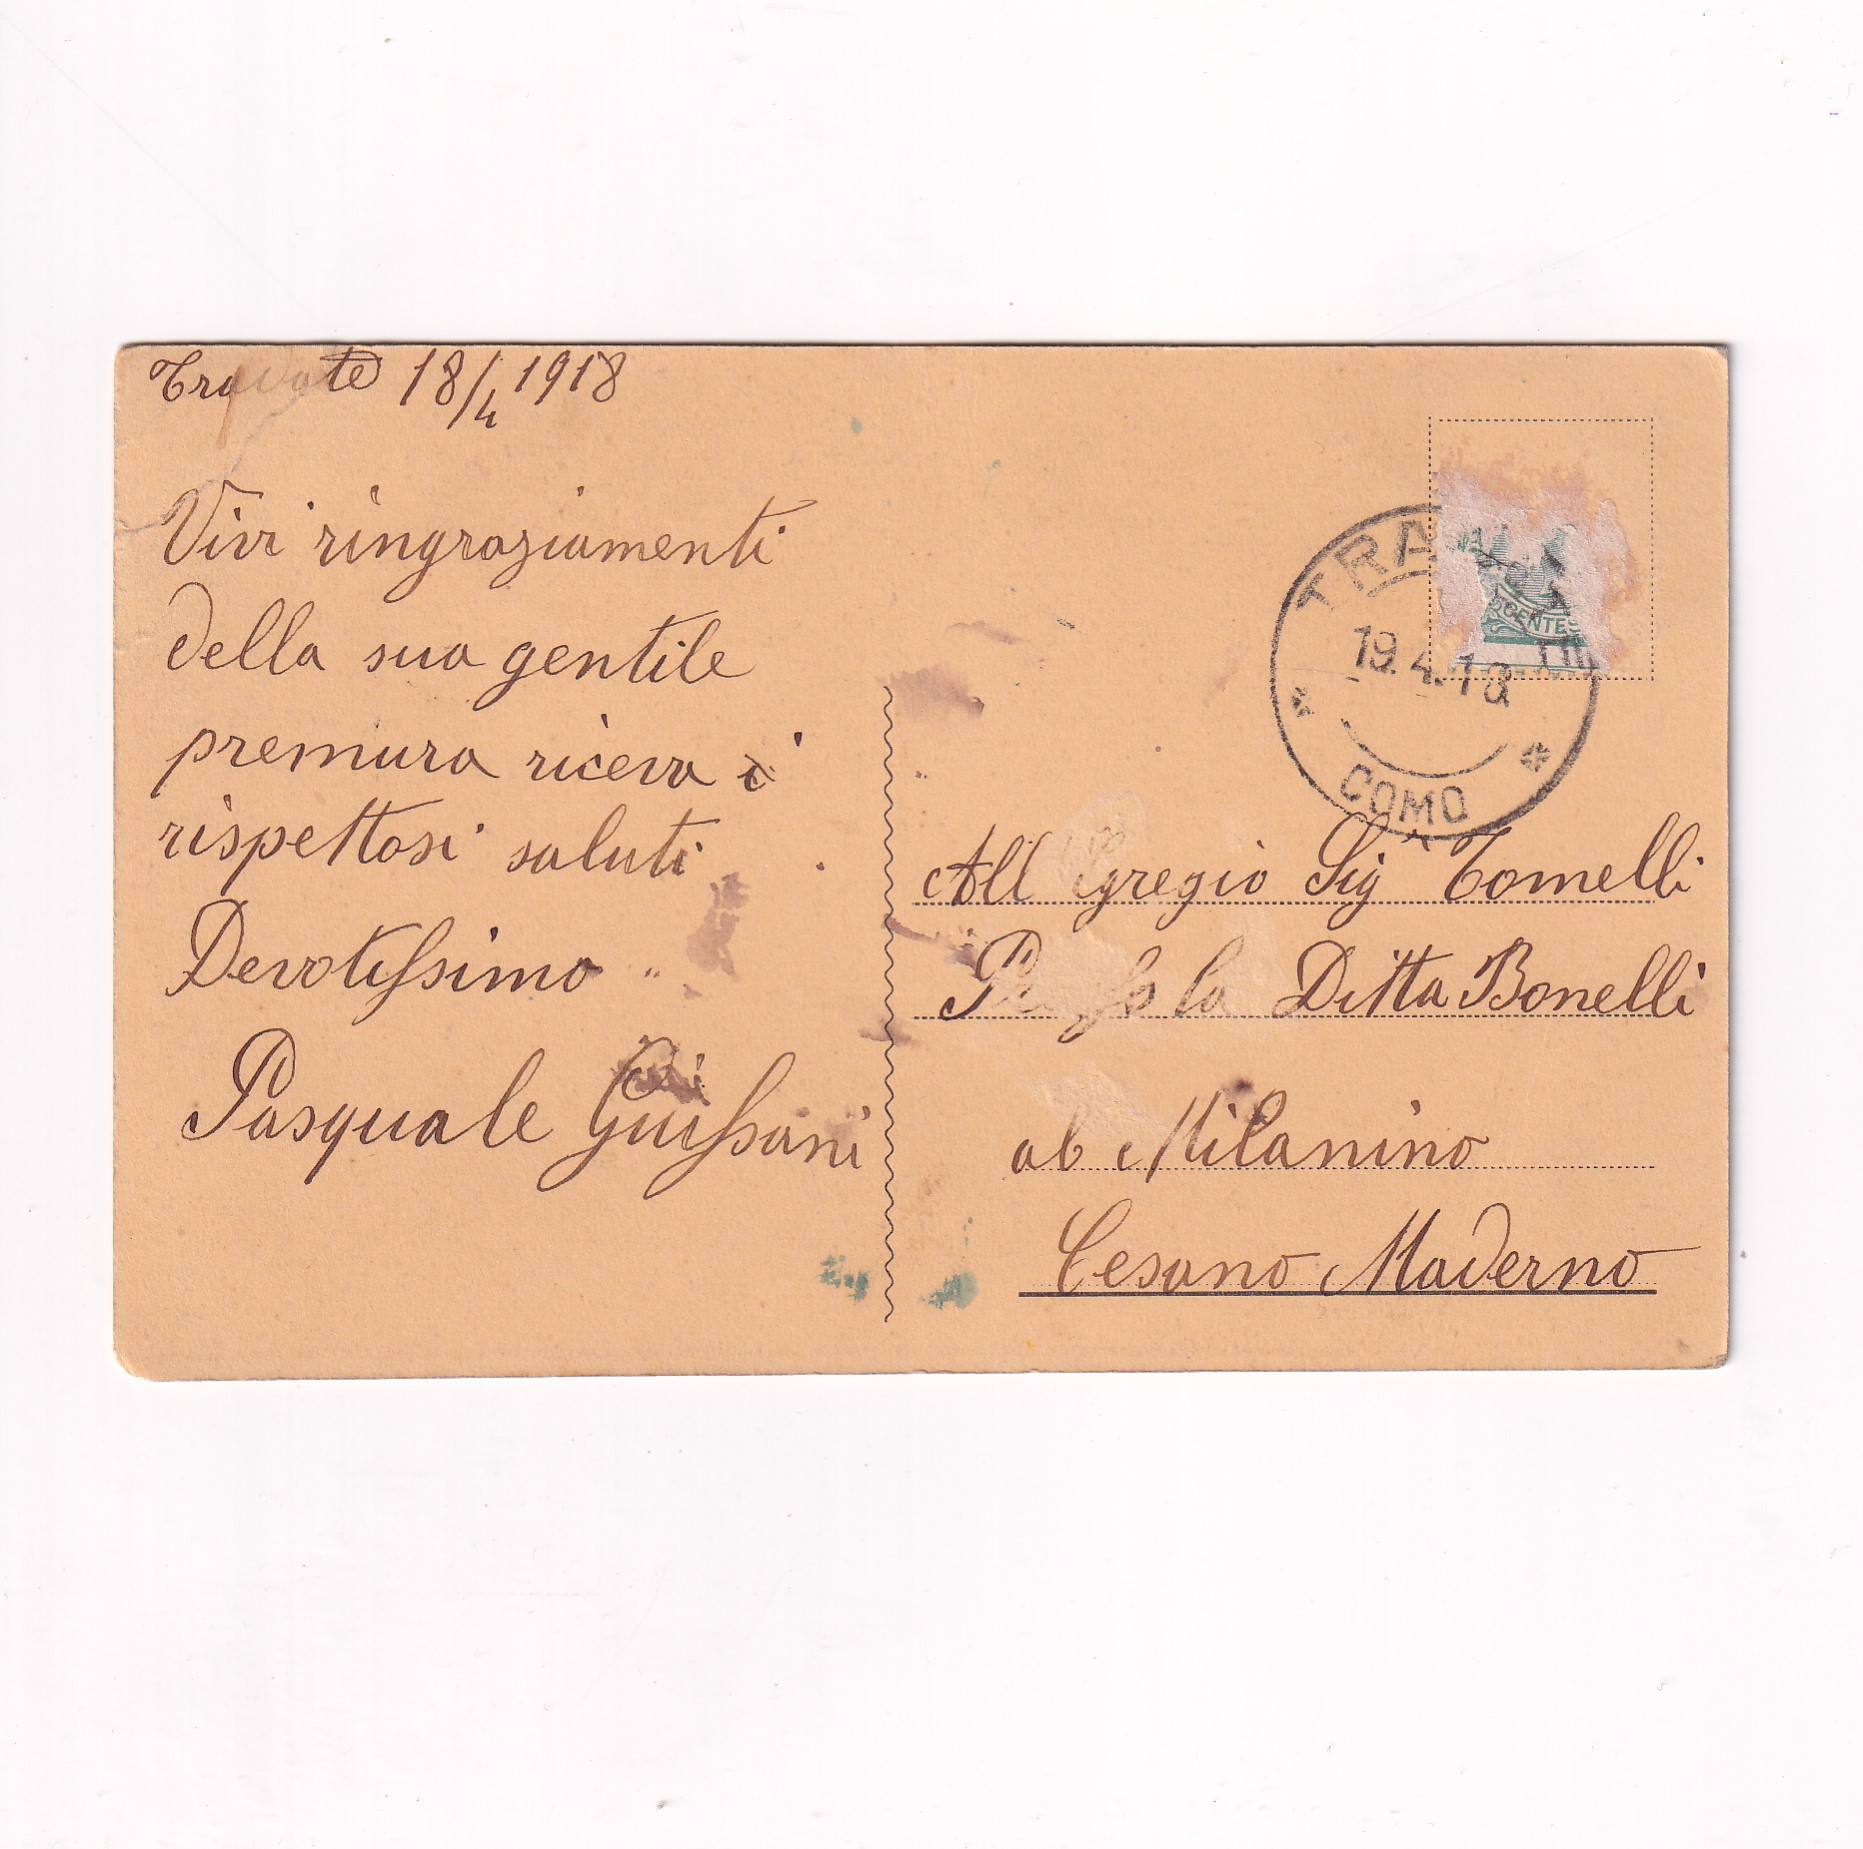 Tradate 18/4 1918
Vivi ringraziamenti
della sua gentile
premura riceva i
rispettosi saluti
Devotissimo
Pasquale Guissani
TRA
19.4.18
COMO
CENTES
All egregio Sig.r Tomelli
la Ditta Bonelli
al Milanino
Cesano Maderno